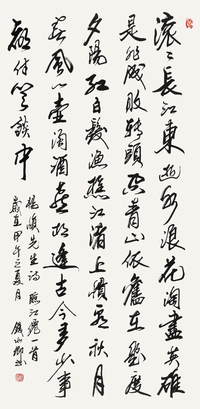 滚々長江東逝水浪花淘盡英雄
是非成敗轉頭空青山依舊在幾度
夕陽紅白髮漁樵江渚上慣看秋月
春風一壺濁酒喜相逢古今多少事
都付笑談中
楊慎先生詩臨江仙一首
歲在甲午之夏月